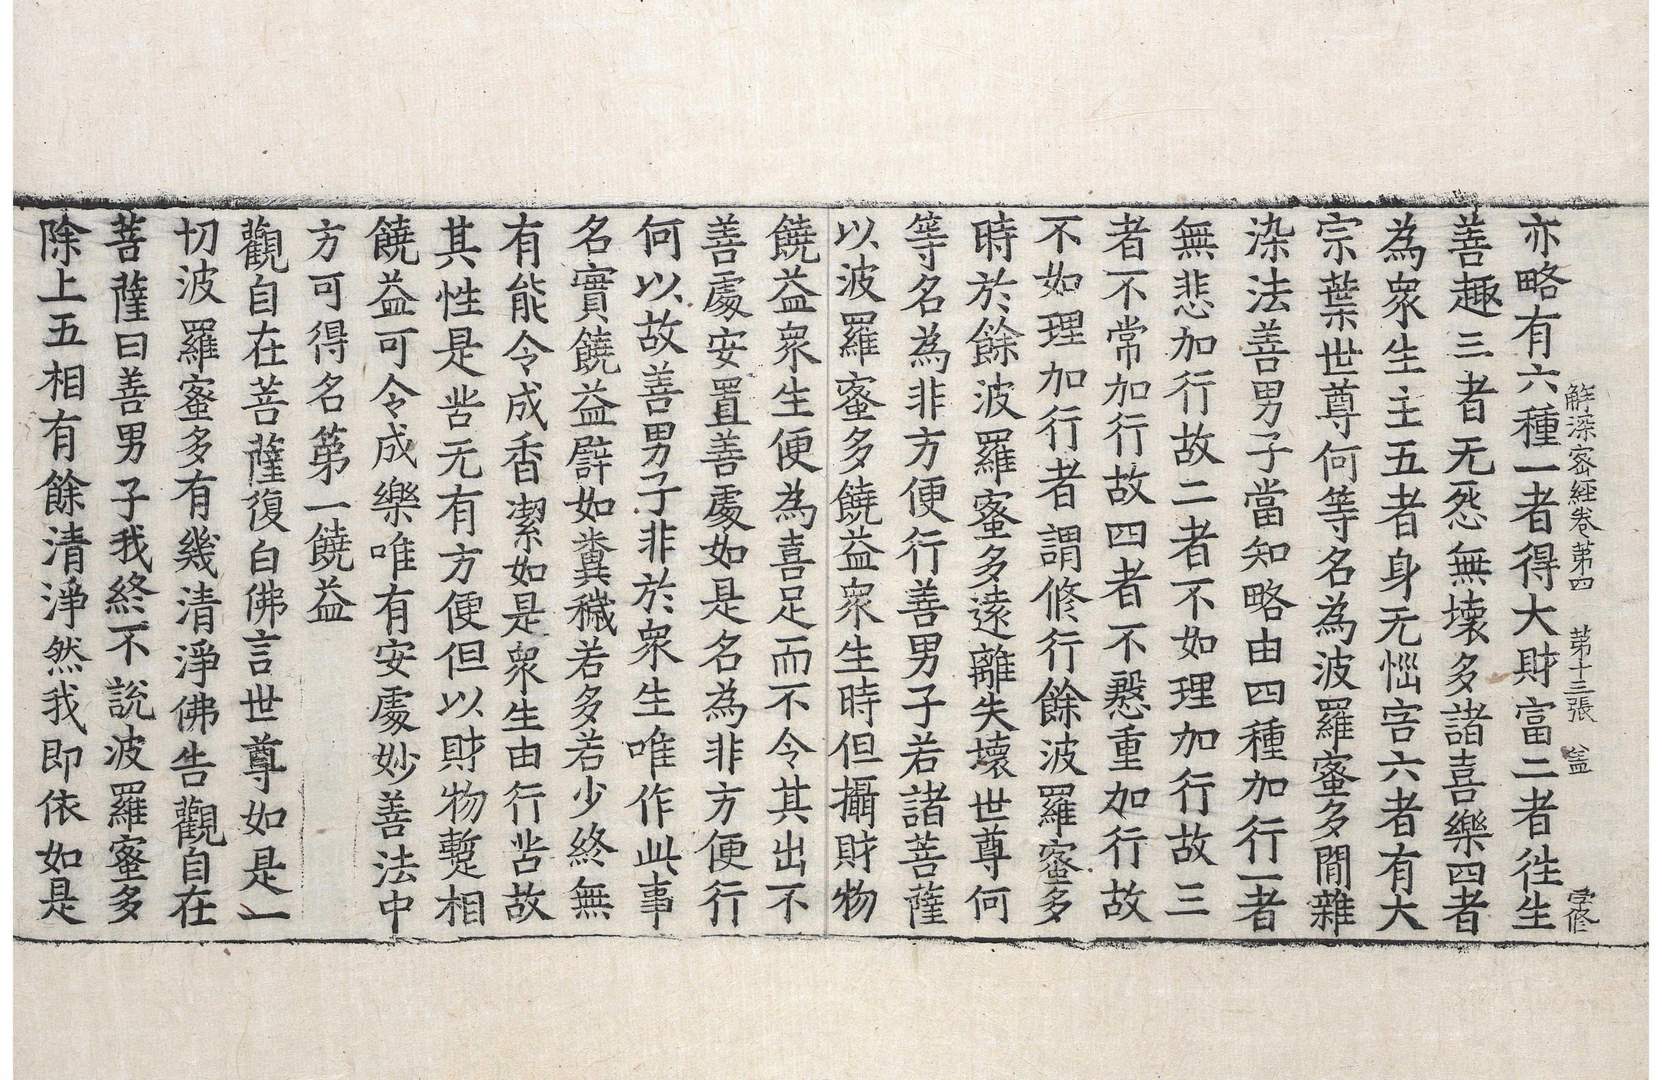 解深密經卷第四 第十三張
亦略有六種一者得大財富二者往生
善趣三者无怨無壞多諸喜樂四者
為衆生主五者身无惱害六者有大
宗葉世尊何等名為波羅蜜多間雜
染法善男子當知略由四種加行一者
無悲加行故二者不如理加行故三
者不常加行故四者不慇重加行故
不如理加行者謂修行餘波羅蜜多
時於餘波羅蜜多遠離失壞世尊何
等名為非方便行善男子若諸菩薩
以波羅蜜多饒益衆生時但攝財物
饒益衆生便為喜足而不令其出不
善處安置善處如是名為非方便行
何以故善男子非於衆生唯作此事
名實饒益譬如糞穢若多若少終無
有能令成香潔如是衆生由行苦故
其性是苦无有方便但以財物暫相
饒益可令成樂唯有安處妙善法中
方可得名第一饒益
觀自在菩薩復白佛言世尊如是一
切波羅蜜多有幾清淨佛告觀自在
菩薩曰善男子我終不說波羅蜜多
除上五相有餘清淨然我即依如是